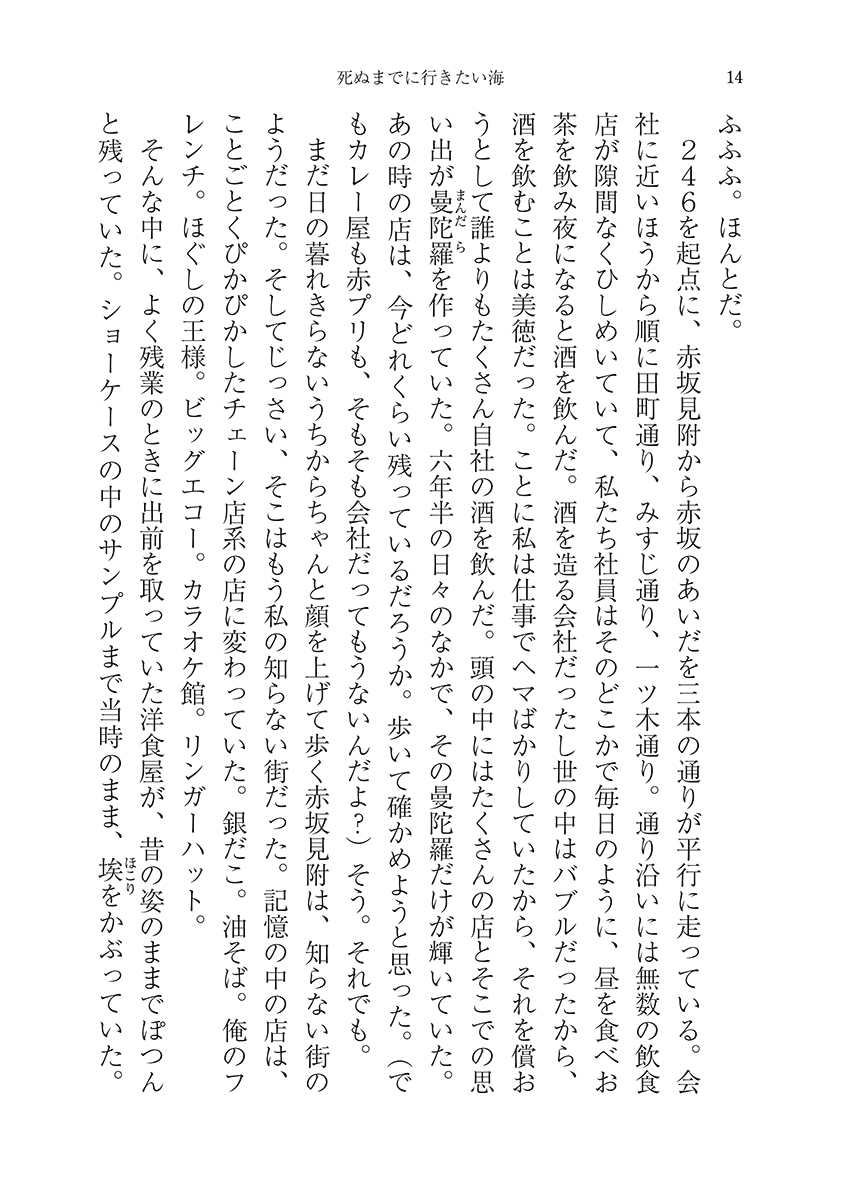 死ぬまでに行きたい海
14
ふふふ。ほんとだ。
　２４６を起点に、赤坂見附から赤坂のあいだを三本の通りが平行に走っている。会
社に近いほうから順に田町通り、みすじ通り、一ツ木通り。通り沿いには無数の飲食
店が隙間なくひしめいていて、私たち社員はそのどこかで毎日のように、昼を食べお
茶を飲み夜になると酒を飲んだ。酒を造る会社だったし世の中はバブルだったから、
酒を飲むことは美徳だった。ことに私は仕事でヘマばかりしていたから、それを償お
うとして誰よりもたくさん自社の酒を飲んだ。頭の中にはたくさんの店とそこでの思
い出が曼陀羅まんだらを作っていた。六年半の日々のなかで、その曼陀羅だけが輝いていた。
あの時の店は、今どれくらい残っているだろうか。歩いて確かめようと思った。（で
もカレー屋も赤プリも、そもそも会社だってもうないんだよ？）そう。それでも。
　まだ日の暮れきらないうちからちゃんと顔を上げて歩く赤坂見附は、知らない街の
ようだった。そしてじっさい、そこはもう私の知らない街だった。記憶の中の店は、
ことごとくぴかぴかしたチェーン店系の店に変わっていた。銀だこ。油そば。俺のフ
レンチ。ほぐしの王様。ビッグエコー。カラオケ館。リンガーハット。
　そんな中に、よく残業のときに出前を取っていた洋食屋が、昔の姿のままでぽつん
と残っていた。ショーケースの中のサンプルまで当時のまま、埃ほこりをかぶっていた。